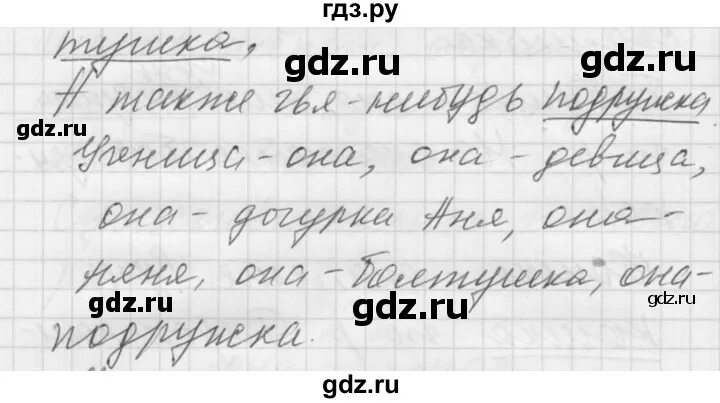 гдз.ру
тушка,
А также чья-нибудь подружка.
gdz.ru
gdz.ru
Ученица - она, она - девица,
она - дочурка Аня, она -
gdz.ru
gdz.ru
няня, она - болтушка, она -
gdz.ru
gdz.ru
подружка.
gdz.ru